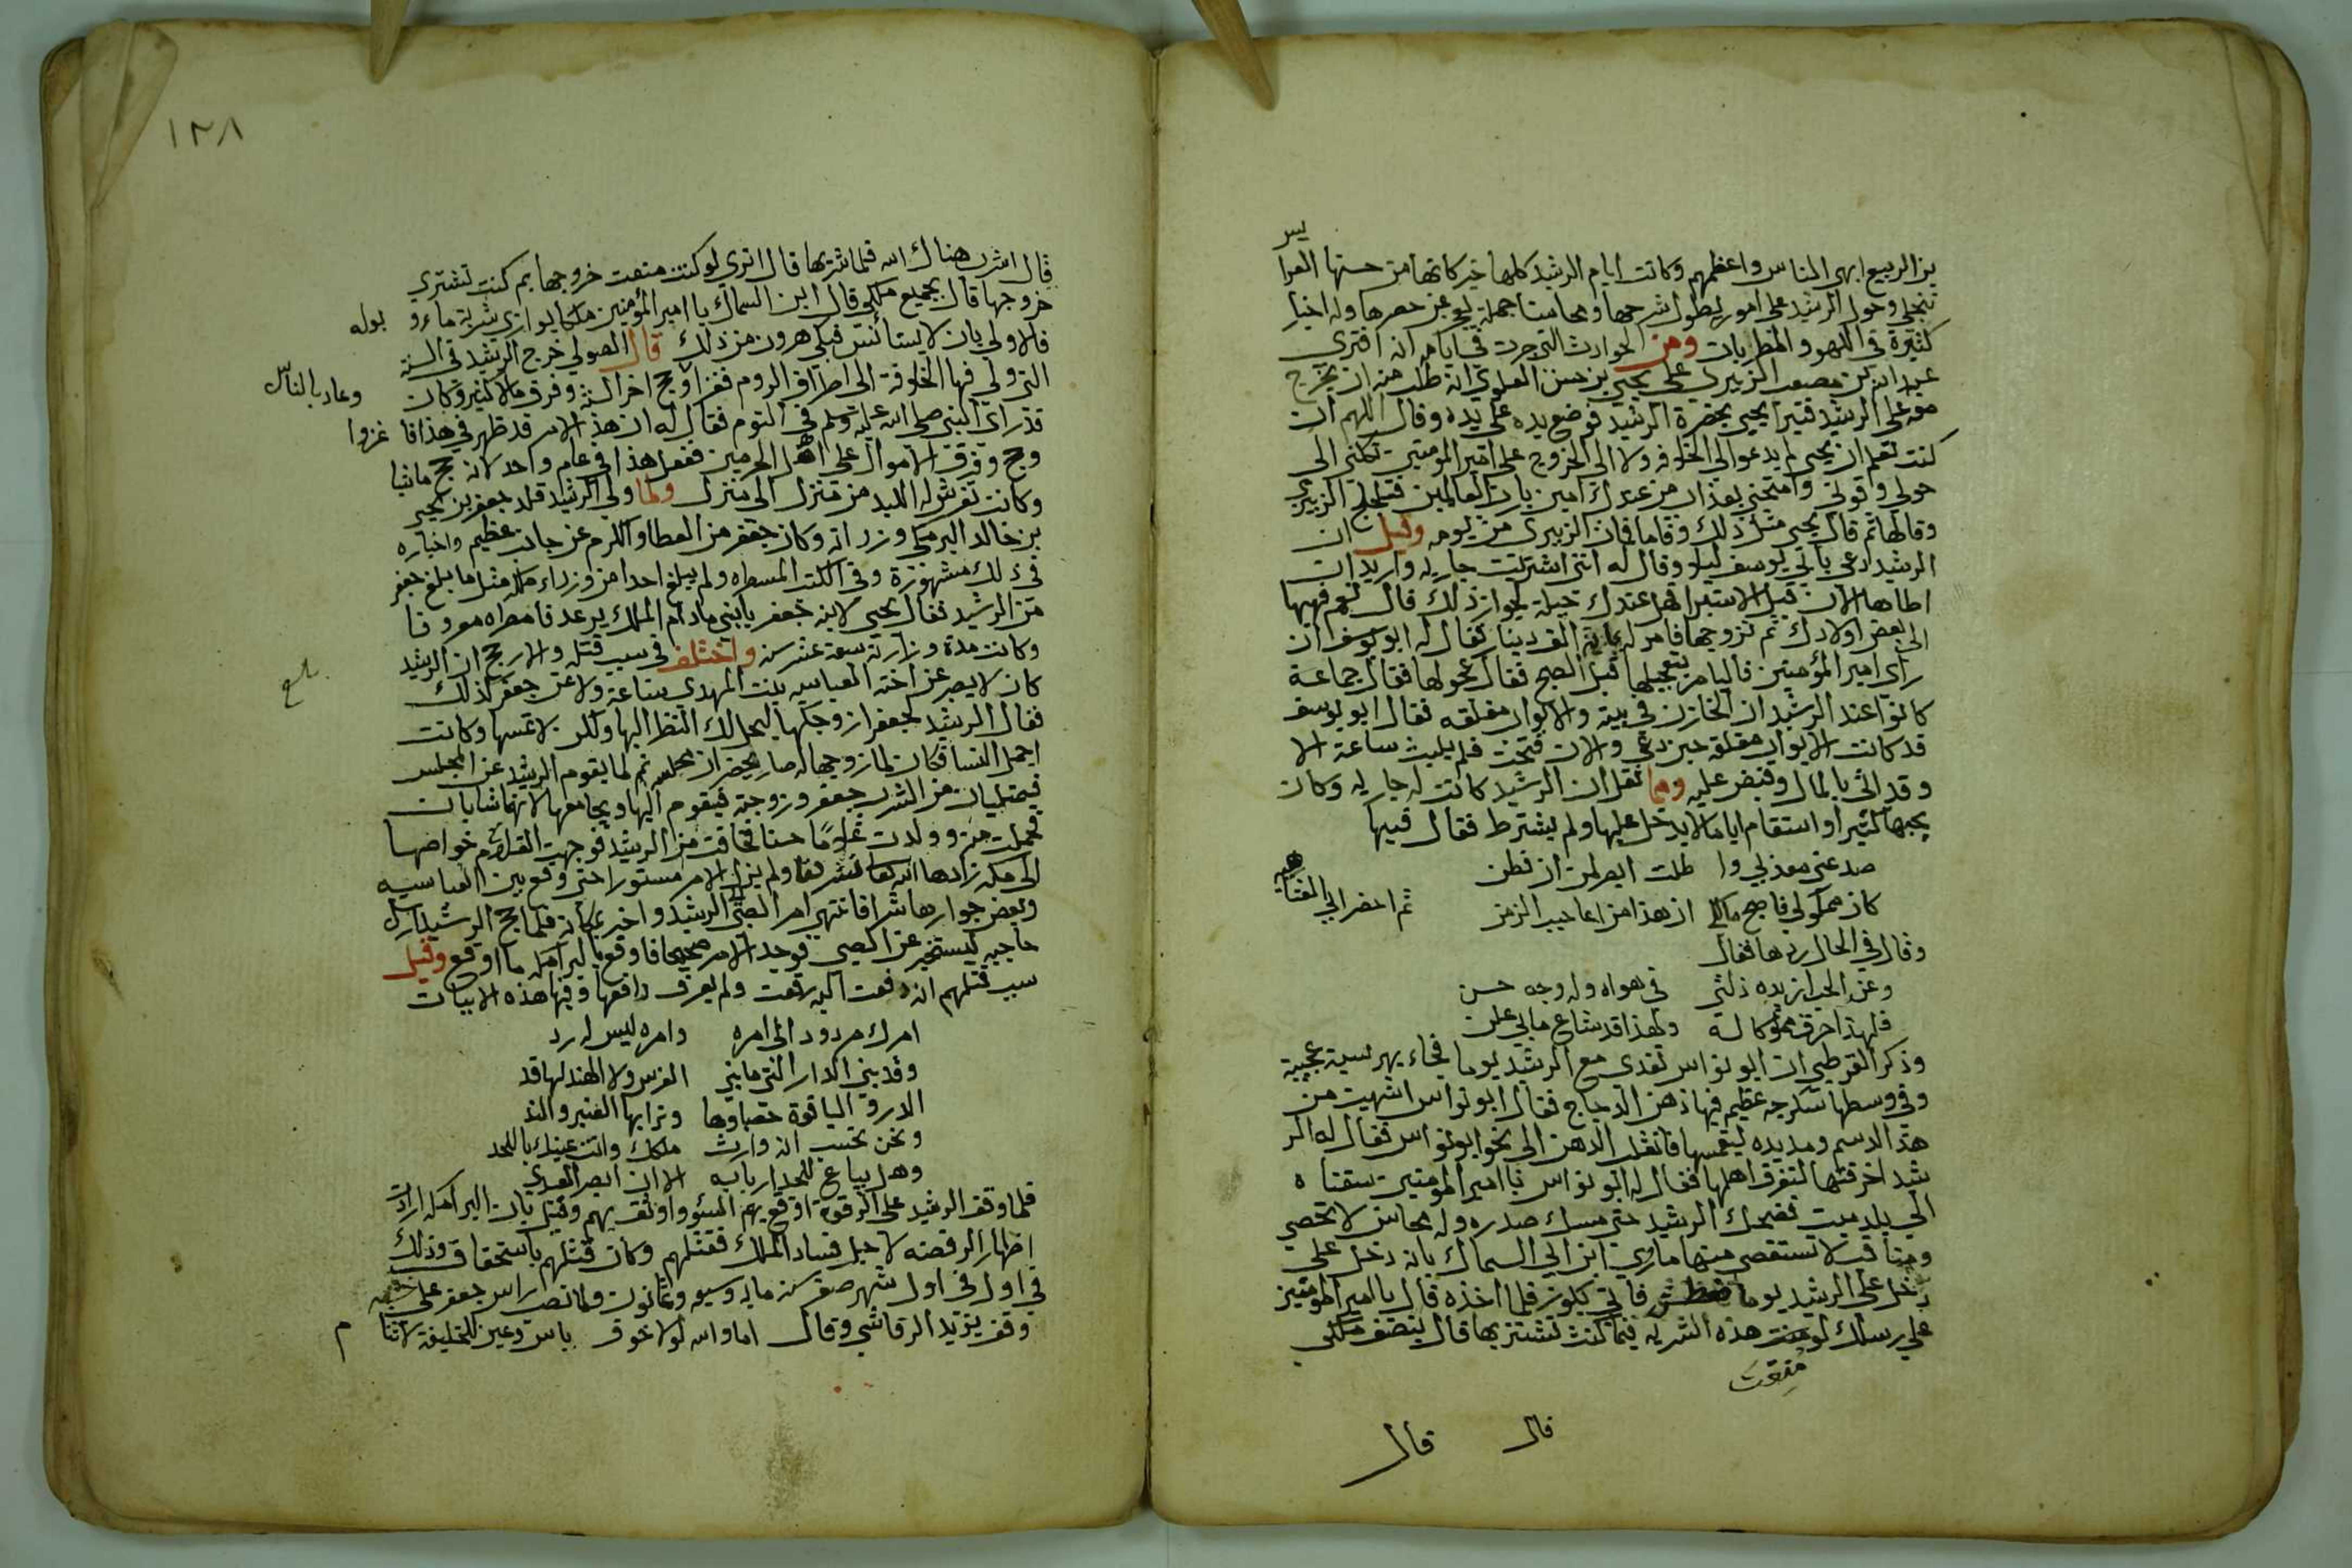 بن الربيع ابهى الناس واعظمهم وكانت ايام الرشيد كلها خير كانها من حسنها العرا
يس
كثيرة في اللهو والمطربات ومن الحوادث التي جرت في ايامه انه افترى
عبد الله بن مصعب الزبيري على يحيى بن حسن العلوي انه طلب منه ان يخرج
معه على الرشيد يحيى بحضرة الرشيد فوضع يده على يده وقال اللهم ان
كنت تعلم ان يحيى لم يدعو الى الخلافة ولا الى الخروج على امير المومنين فكلني الى
حولي وقوتي بعذاب من عندك امين يارب العالمين الزبيري
وقالها ثم قال يحيى مثل ذلك وقاما فمات الزبيري من يومه وقيل ان
الرشيد دعى بابي يوسف ليلا وقال له انني اشتريت جارية واريد ان
اطاها الان قبل الاستبرا فهل عندك حيلة لجواز ذلك قال نعم فهبها
الى بعض اولادك ثم تزوجها فامر له بماية الف دينار فقال له ابو يوسف ان
راى امير المؤمنين فاليامر بتعجيلها قبل الصبح فقال عجلوها فقال جماعة
كانوا عند الرشيد ان الخازن في بيته والابواب مغلقه فقال ابو يوسف
قد كانت الابواب مغلقه حين دعي والان فتحت فلم يلبث ساعة الا
وقد اتى بالمال وقبض عليه ومما نقل ان الرشيد كانت له جاريه وكان
يحبها كثيرا واستقام اياما لا يدخل عليها ولم يشترط فقال فيها
صد عني معذبي وا طلت الصد لمن ان فطن
كان مملوكي فاصبح مالكي ان هذا من اعاجيب الزمن
ثم احضر ابي العتاهيه
وقال في الحال زدها فقال
وعن الحب از يده ذلتي في هواه وله وجه حسن
فلهذا صرت مملوكا له ولهذا قد شاع مابي علن
وذكر القرطبي ان ابو نواس تغدى مع الرشيد يوما فجاء بهرسية عجيبة
وفي وسطها سكرجه عظيم فيها دهن الدجاج فقال ابو نواس اشتهيت من
هذا الدسم ومد يده ليغمسها فانفلت الدهن الى نحو ابو نواس فقال له الر
شيد اخرقتها لتغرق اهلها فقال له ابو نواس يا امير المومنين سقناه
الى بلد ميت فضحك الرشيد حتى مسك صدره وله محاسن لا تحصى
ومناقب لا تستقصى منها ماروي ابن ابي السماك بانه دخل على
دخل على الرشيد يوما فعطش فاتي بكوز فلما اخذه قال يا امير المومنين
على رسلك لو منعت هذه الشربه فبما كنت تشتريها قال بنصف ملكي
منعت
قال قال
١٢٨
قال اشرب هناك الله فلما شربها قال اترى لو كنت منعت خروجها بم كنت تشتري
خروجها قال بجميع ملكي قال ابن السماك يا امير المؤمنين ملكا يوازي شربة ماء و بوله
فالاولى بان لا يستانس فبكى هرون من ذلك قال الصولي خرج الرشيد في السنة
التي ولي فيها الخلافة الى اطراف الروم فغزا وحج اخر السنة وفرق مالا كثير وكان
وعاد بالناس
قد راى النبي صلى الله عليه وسلم في النوم فقال له ان هذا الامر قد ظهر في هذا فا غزوا
وحج وفرق الاموال على اهل الحرمين ففعل هذا في عام واحد لانه حج ماشيا
وكانت تفرش له اللبد من منزل الى منزل ولما ولي الرشيد قلد جعفر بن يحيى
بن خالد البرمكي وزراته وكان جعفر من العطا والكرم عن جانب عظيم واخباره
في ذلك مشهورة وفي الكتب المسطره ولم يبلغ احدا من وزراء مثل ما بلغ جعفر
من الرشيد فقال يحيى لابنه جعفر يابني مادام الملك يرعد فا
وكانت مدة وزارته سبعة عشر سنه واختلف في سبب قتله والارجح ان الرشيد
كان لا يصبر عن اخته العباسيه بنت المهدي ساعة ولا عن جعفر كذلك
فقال الرشيد لجعفر ازوجكها ليحل لك النظر اليها ولكن لا تمسها وكانت
اجمل النسا فكان لما زوجها له صار يحضران مجلسه ثم لما يقوم الرشيد عن المجلس
فيمتليان من الشرب جعفر وزوجته فيقوم اليها ويجامعها لانهما شابان
فحملت منه وولدت غلاما حسنا فخافت من الرشيد فوجهت الغلام خواضها
الى مكه زادها الله تعالى شرفا ولم يزل الامر مستورا حتى وقع بين العباسيه
وبعض جوارها شرا فانتهى امر الصبي الرشيد واخبر بمكانه فلما حج الرشيد ارسل
حاجبه ليستخبر عن الصبي فوجد الامر صحيحا فاوقع بالبرامكه ما اوقع وقيل
سبب قتلهم انه دفعت اليه رقعت ولم يعرف دافعها وفيها هذه الابيات
امرك مردود الى امره وامره ليس له رد
وقد بنى الدار التي ما بني الفرس ولا الهند لها قد
الدر والياقوة حصباوها وترابها العنبر والند
ونحن نحسب انه وارث ملكك وانت عينك باللحد
وهل يباع اللحد اربابه الا ان ابصر العبدي
فلما وقف الرشيد على الرقعة اوقع بهم السؤ واوثق بهم وقيل بان البرامكه ارادت
اظهار الرفضه لاجل فساد الملك فقتلهم وكان قتلهم باستحقاق وذلك
في اول في اول شهر صفر سنه مايه وسبعه وثمانون ولما نصب راس جعفر على خشبه
وقف يزيد الرقاشي وقال اما والله لولا خوف باس وعين للخليفة لا تنا م
بلغ